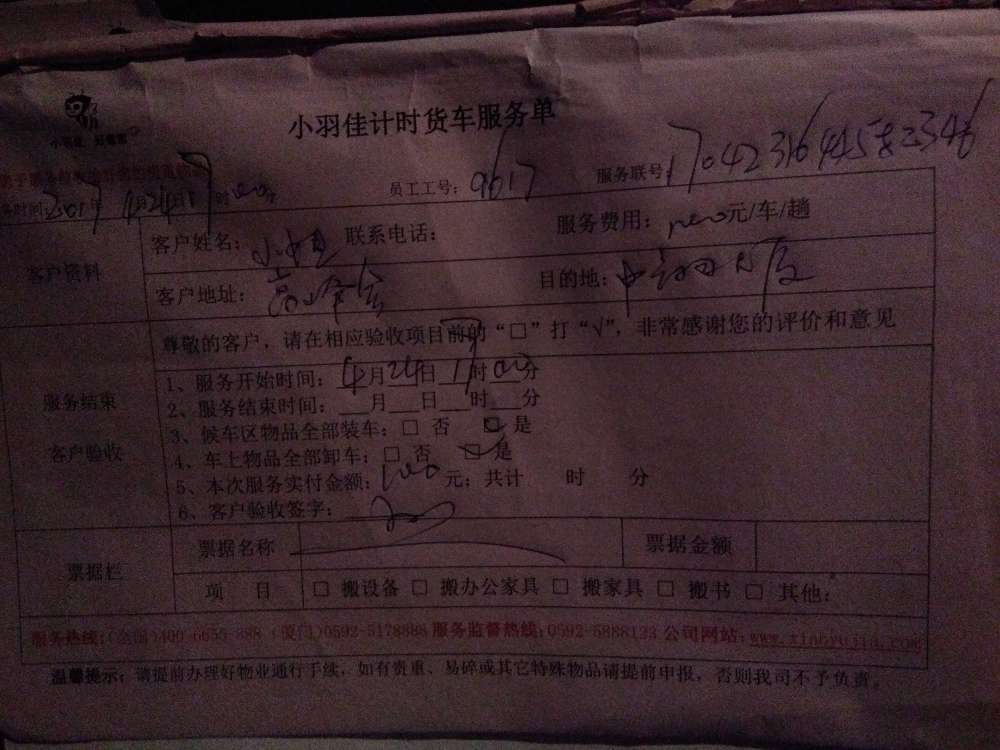 小羽佳计时货车服务单
员工工号: 9617 服务联号:
务时间: 2017年 4月24日17时00分
客户资料
客户姓名: 联系电话: 服务费用: 元/车/趟
客户地址: 目的地:
尊敬的客户，请在相应验收项目前的“□”打“√”，非常感谢您的评价和意见
服务结束
客户验收
1、服务开始时间: 4月24日17时00分
2、服务结束时间: ___月___日___时___分
3、候车区物品全部装车: □ 否 ☑ 是
4、车上物品全部卸车: □ 否 ☑ 是
5、本次服务实付金额: 100 元; 共计 时 分
6、客户验收签字:
票据栏
票据名称 票据金额
项 目 □ 搬设备 □ 搬办公家具 □ 搬家具 □ 搬书 □ 其他:
服务热线:(全国)400-6655-888 (厦门)0592-5178888 服务监督热线:0592-5888123 公司网站: www.xiaoyujia.com
温馨提示: 请提前办理好物业通行手续，如有贵重、易碎或其它特殊物品请提前申报，否则我司不予负责。